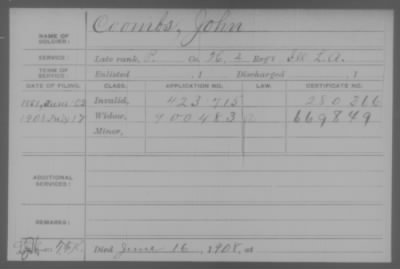 NAME OF SOLDIER: Coombs, John
SERVICE: Late rank, P. Co. H, 2 Reg't Ill. L.A.
TERM OF SERVICE: Enlisted , 1 Discharged , 1
DATE OF FILING. CLASS. APPLICATION NO. LAW. CERTIFICATE NO.
1881, June 02 Invalid, 423 715 280 216
1908 July 17 Widow, 900483 669849
Minor,
ADDITIONAL SERVICES:
REMARKS:
Died June 16, 1908, at